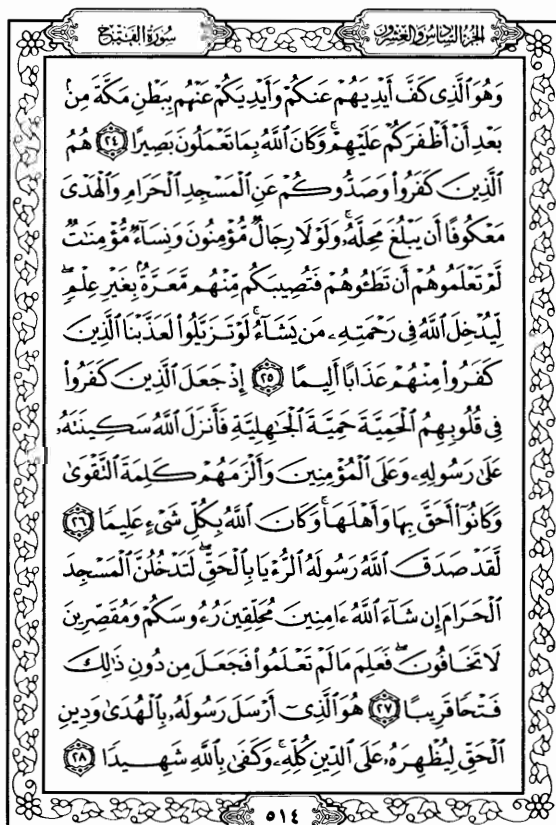 سُورَةُ الفَتْحِ
الجُزْءُ السَّادِسُ وَالعِشْرُونَ
وَهُوَ ٱلَّذِى كَفَّ أَيْدِيَهُمْ عَنكُمْ وَأَيْدِيَكُمْ عَنْهُم بِبَطْنِ مَكَّةَ مِنۢ
بَعْدِ أَنْ أَظْفَرَكُمْ عَلَيْهِمْ ۚ وَكَانَ ٱللَّهُ بِمَا تَعْمَلُونَ بَصِيرًا ﴿٢٤﴾ هُمُ
ٱلَّذِينَ كَفَرُوا۟ وَصَدُّوكُمْ عَنِ ٱلْمَسْجِدِ ٱلْحَرَامِ وَٱلْهَدْىَ
مَعْكُوفًا أَن يَبْلُغَ مَحِلَّهُۥ ۚ وَلَوْلَا رِجَالٌ مُّؤْمِنُونَ وَنِسَآءٌ مُّؤْمِنَٰتٌ
لَّمْ تَعْلَمُوهُمْ أَن تَطَـُٔوهُمْ فَتُصِيبَكُم مِّنْهُم مَّعَرَّةٌۢ بِغَيْرِ عِلْمٍ ۖ
لِّيُدْخِلَ ٱللَّهُ فِى رَحْمَتِهِۦ مَن يَشَآءُ ۚ لَوْ تَزَيَّلُوا۟ لَعَذَّبْنَا ٱلَّذِينَ
كَفَرُوا۟ مِنْهُمْ عَذَابًا أَلِيمًا ﴿٢٥﴾ إِذْ جَعَلَ ٱلَّذِينَ كَفَرُوا۟
فِى قُلُوبِهِمُ ٱلْحَمِيَّةَ حَمِيَّةَ ٱلْجَٰهِلِيَّةِ فَأَنزَلَ ٱللَّهُ سَكِينَتَهُۥ
عَلَىٰ رَسُولِهِۦ وَعَلَى ٱلْمُؤْمِنِينَ وَأَلْزَمَهُمْ كَلِمَةَ ٱلتَّقْوَىٰ
وَكَانُوٓا۟ أَحَقَّ بِهَا وَأَهْلَهَا ۚ وَكَانَ ٱللَّهُ بِكُلِّ شَىْءٍ عَلِيمًا ﴿٢٦﴾
لَّقَدْ صَدَقَ ٱللَّهُ رَسُولَهُ ٱلرُّءْيَا بِٱلْحَقِّ ۖ لَتَدْخُلُنَّ ٱلْمَسْجِدَ
ٱلْحَرَامَ إِن شَآءَ ٱللَّهُ ءَامِنِينَ مُحَلِّقِينَ رُءُوسَكُمْ وَمُقَصِّرِينَ
لَا تَخَافُونَ ۖ فَعَلِمَ مَا لَمْ تَعْلَمُوا۟ فَجَعَلَ مِن دُونِ ذَٰلِكَ
فَتْحًا قَرِيبًا ﴿٢٧﴾ هُوَ ٱلَّذِىٓ أَرْسَلَ رَسُولَهُۥ بِٱلْهُدَىٰ وَدِينِ
ٱلْحَقِّ لِيُظْهِرَهُۥ عَلَى ٱلدِّينِ كُلِّهِۦ ۚ وَكَفَىٰ بِٱللَّهِ شَهِيدًا ﴿٢٨﴾
٥١٤